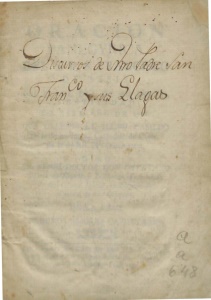 Discursos de Nro Padre San
Franco y sus Llagas
a
a
643